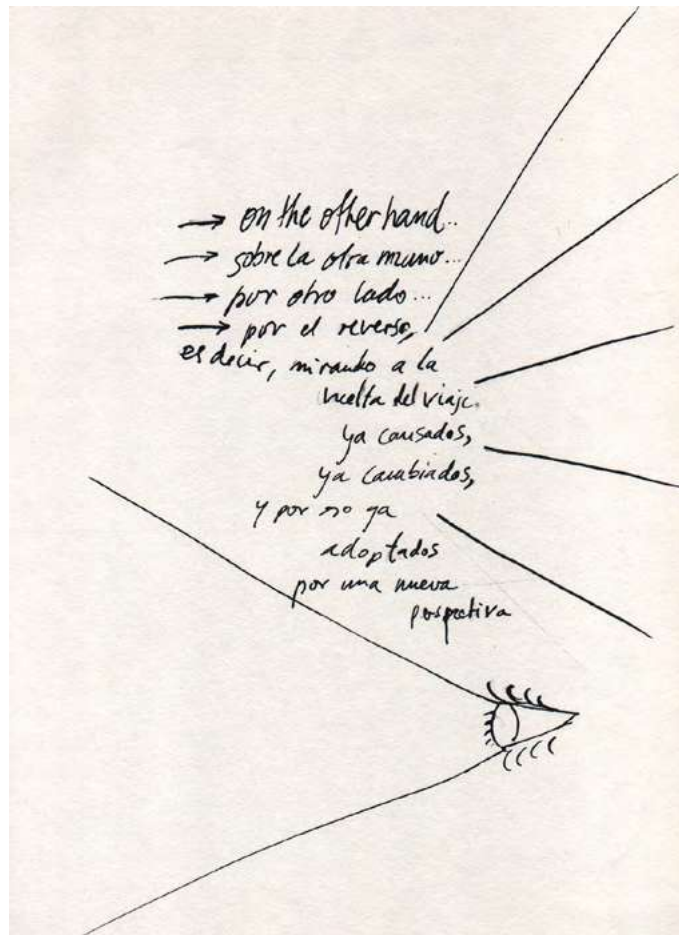 → on the other hand..
→ sobre la otra mano...
→ por otro lado...
→ por el reverso,
es decir, mirando a la
vuelta del viaje.
ya cansados,
ya cambiados,
y por no ya
adoptados
por una nueva
perspectiva